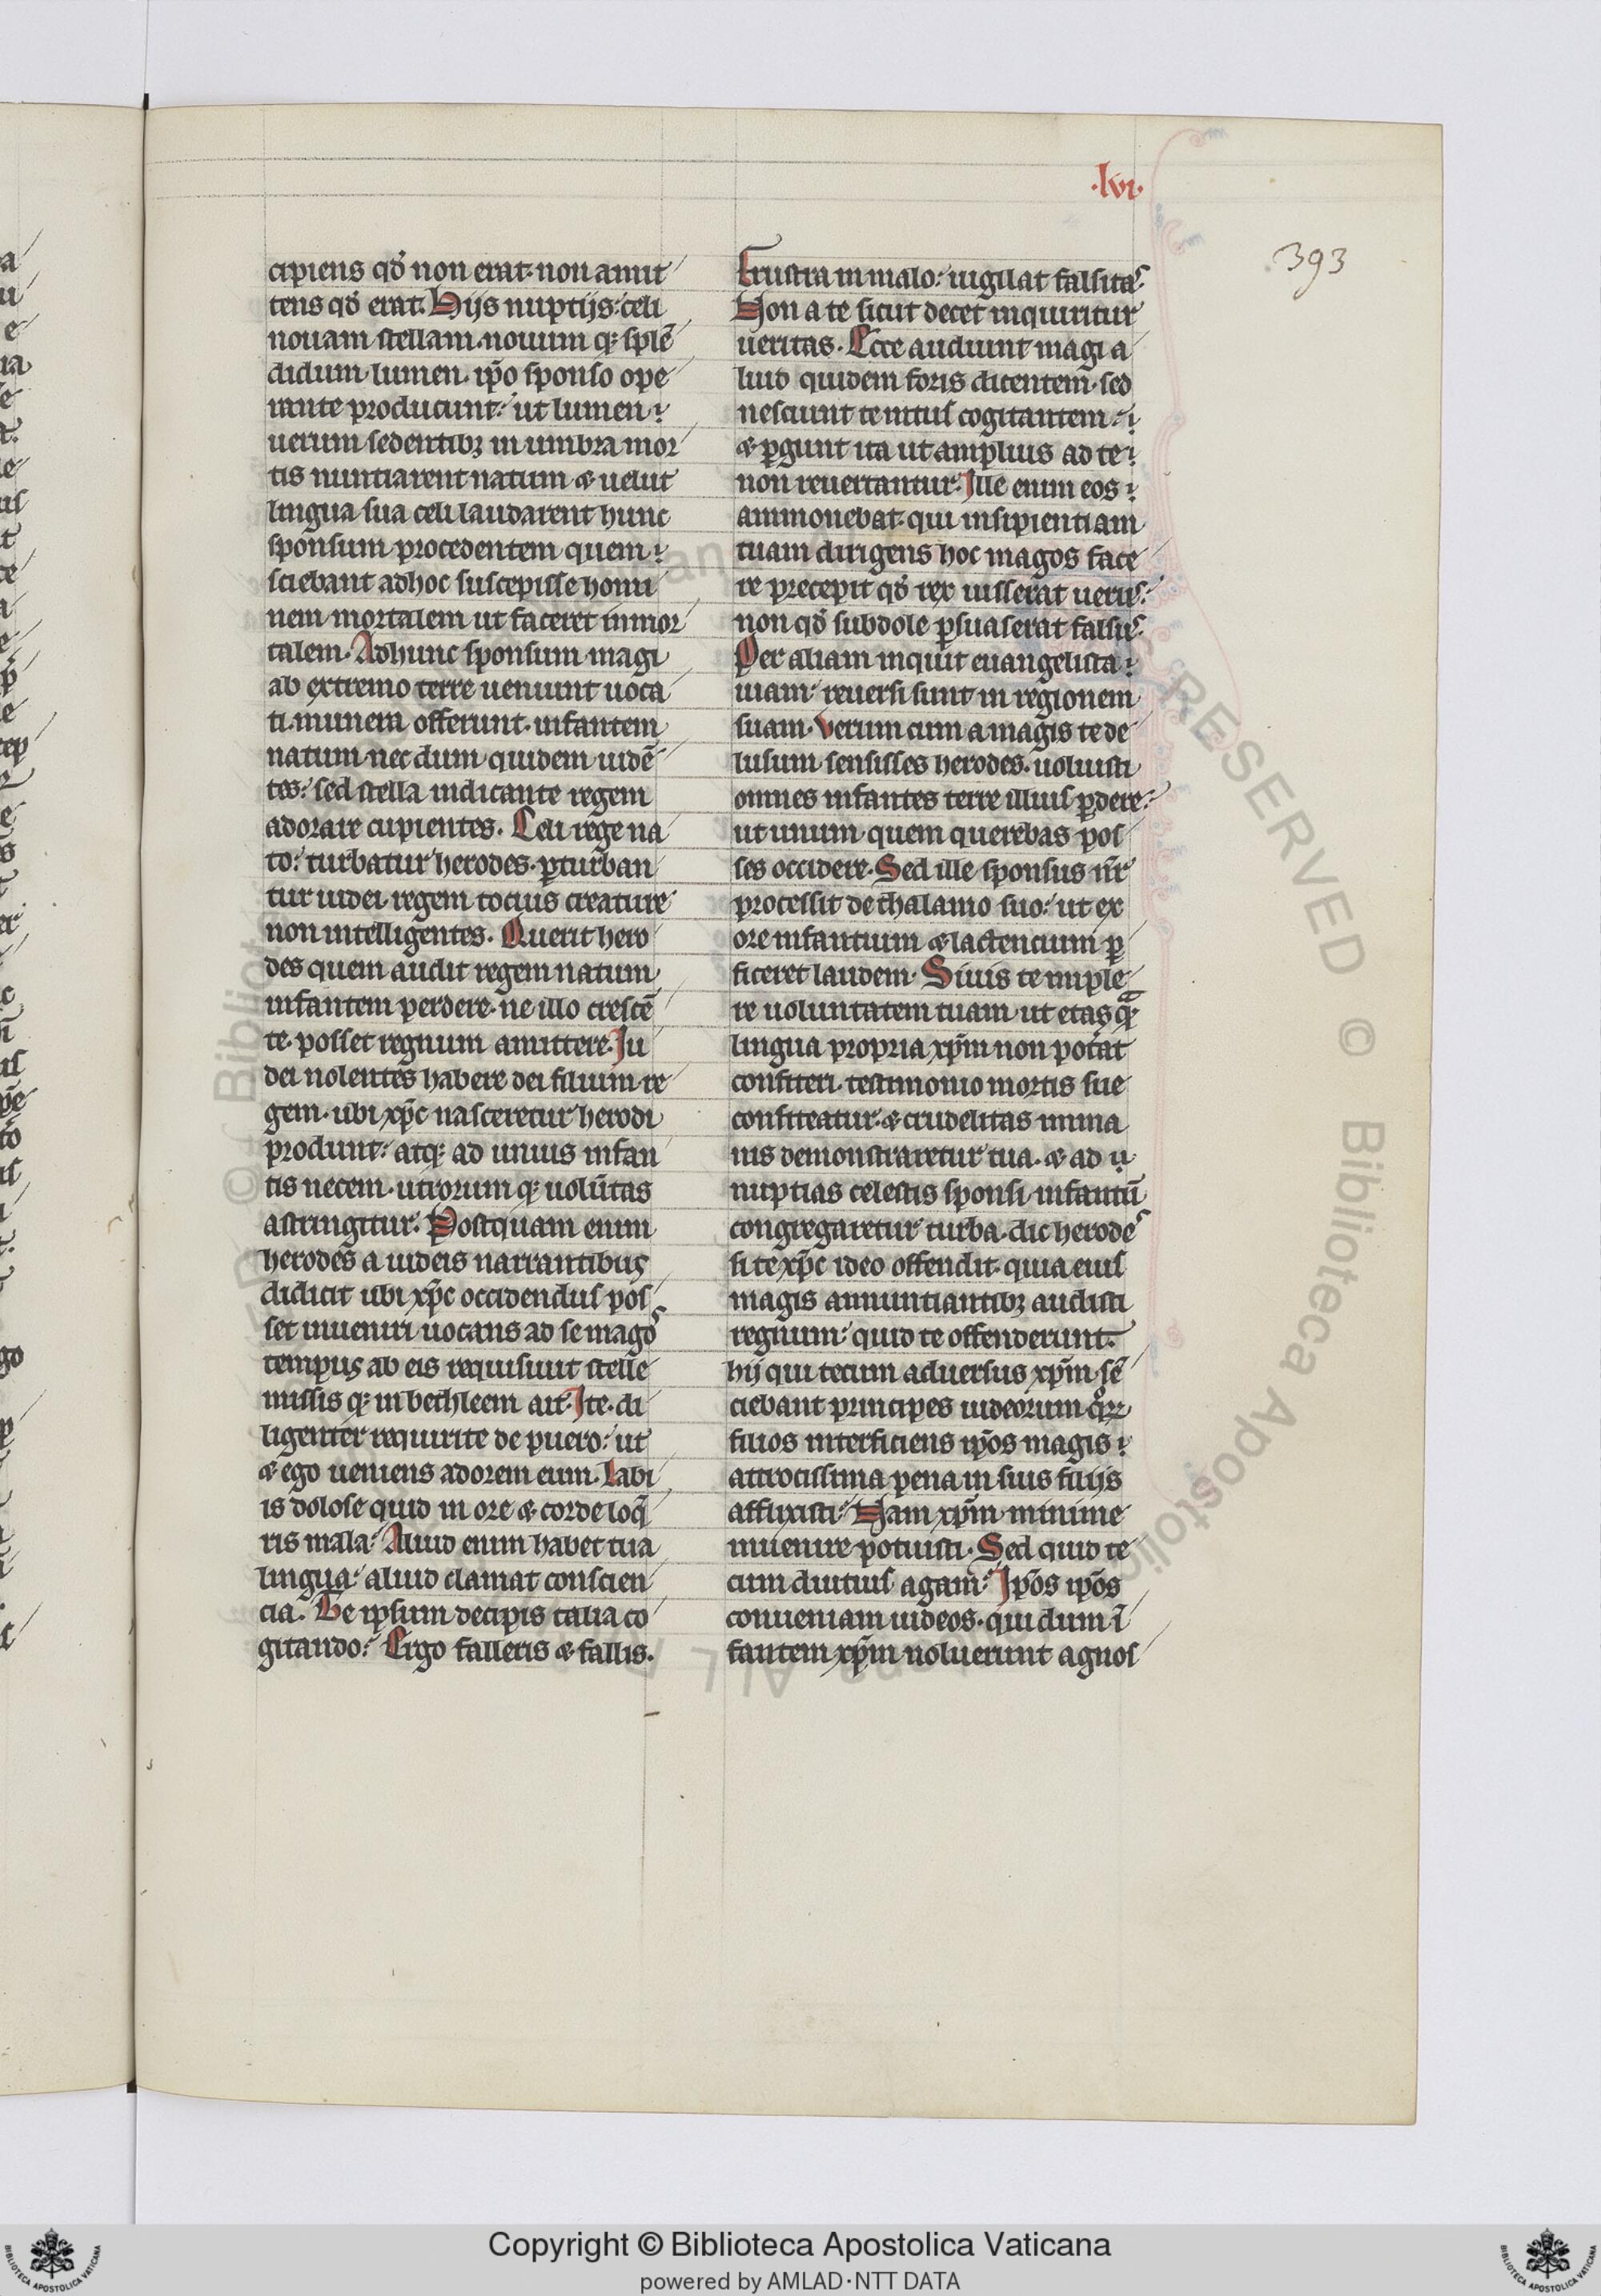 .lvi.
393
cipiens qđ non erat. non amit
tens qđ erat. Hijs nuptijs: celi
nouam stellam. nouum q; splē
didum lumen. ip̄o sponso ope
rante producunt: ut lumen
uerum sedentibꝫ in umbra mor
tis nuntiarent natum ⁊ uelut
lingua sua celi laudarent hunc
sponsum procedentem quem
sciebant adhoc suscepisse homi
nem mortalem ut faceret inmor
talem. Adhunc sponsum magi
ab extremo terre ueniunt uoca
ti. munera offerunt. infantem
natum nec dum quidem uidē
tes: sed stella indicante regem
adorare cupientes. Celi rege na
to: turbatur herodes. ꝑturban
tur iudei. regem tocius creature
non intelligentes. Querit hero
des quem audit regem natum
infantem perdere. ne illo crescē
te. posset regnum amittere. Ju
dei nolentes habere dei filium re
gem. ubi xp̄c nasceretur herodi
produnt: atq; ad unius infan
tis necem. utrorum q; uolūtas
astringitur. Postquam enim
herodes a iudeis narrantibus
didicit ubi xp̄c occidendus pos
set inueniri uocans ad se magos
tempus ab eis requisiuit stelle
missis q; in bethleem ait. Ite. di
ligenter requirite de puero: ut
⁊ ego ueniens adorem eum. Labi
is dolose quid in ore ⁊ corde loq̄
ris mala: Aliud enim habet tua
lingua: aliud clamat conscien
cia. Te ipsum decipis talia co
gitando: Ergo falleris ⁊ fallis.
Frustra in malo: uigilat falsitas
Non a te sicut decet inquiritur
ueritas. Ecce audiunt magi a
liud quidem foris dicentem. sed
nesciunt te intus cogitantem
⁊ ꝑgunt ita ut amplius ad te
non reuertantur. Ille enim eos
ammonebat. qui insipientiam
tuam dirigens hoc magos face
re precepit qđ rex iusserat uerus:
non qđ subdole ꝑsuaserat falsus.
Per aliam inquit euangelista
uiam: reuersi sunt in regionem
suam. Verum cum a magis te de
lusum sensisses herodes. uoluisti
omnes infantes terre illius ꝑdere:
ut unum quem querebas pos
ses occidere. Sed ille sponsus nr̄
processit de thalamo suo: ut ex
ore infantium ⁊ lactencium ꝑ
ficeret laudem. Siuis te imple
re uoluntatem tuam. ut etas q
lingua propria xp̄m non poterat
confiteri. testimonio mortis sue
confiteatur. ⁊ crudelitas imma
nis demonstraretur tua. ⁊ ad
nuptias celestis sponsi infantū
congregaretur turba. dic herodes
si te xp̄c ideo offendit. quia eius
magis annuntiantibꝫ audisti
regnum: quid te offenderunt.
hij qui tecum aduersus xp̄m sē
ciebant principes iudeorum
filios interficiens ip̄os magis
attrocissima pena in suis filijs
affixisti: Nam xp̄m minime
inuenire potuisti. Sed quid te
cum diutius agam: Ip̄os ip̄os
conueniam iudeos. qui dum ī
fantem xp̄m noluerunt agnos
Copyright © Biblioteca Apostolica Vaticana
powered by AMLAD·NTT DATA